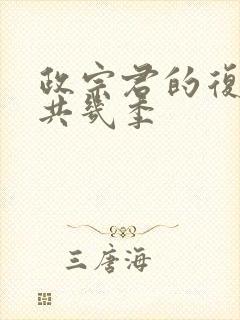 政宗君的復
共幾季
三唐海